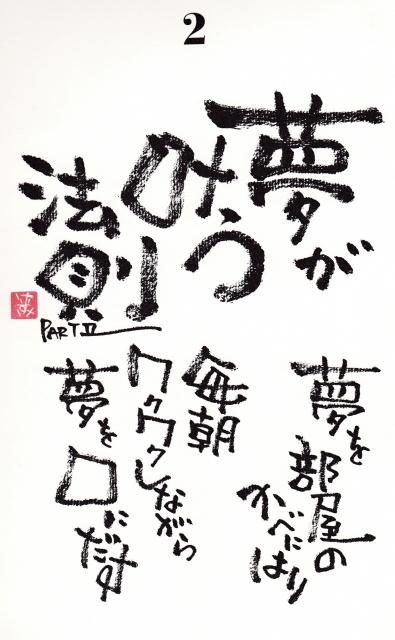 2
夢が
叶う
法則
PART II
夢を
部屋の
かべに
はり
毎朝
ワクワク
しながら
夢を
口に
だす